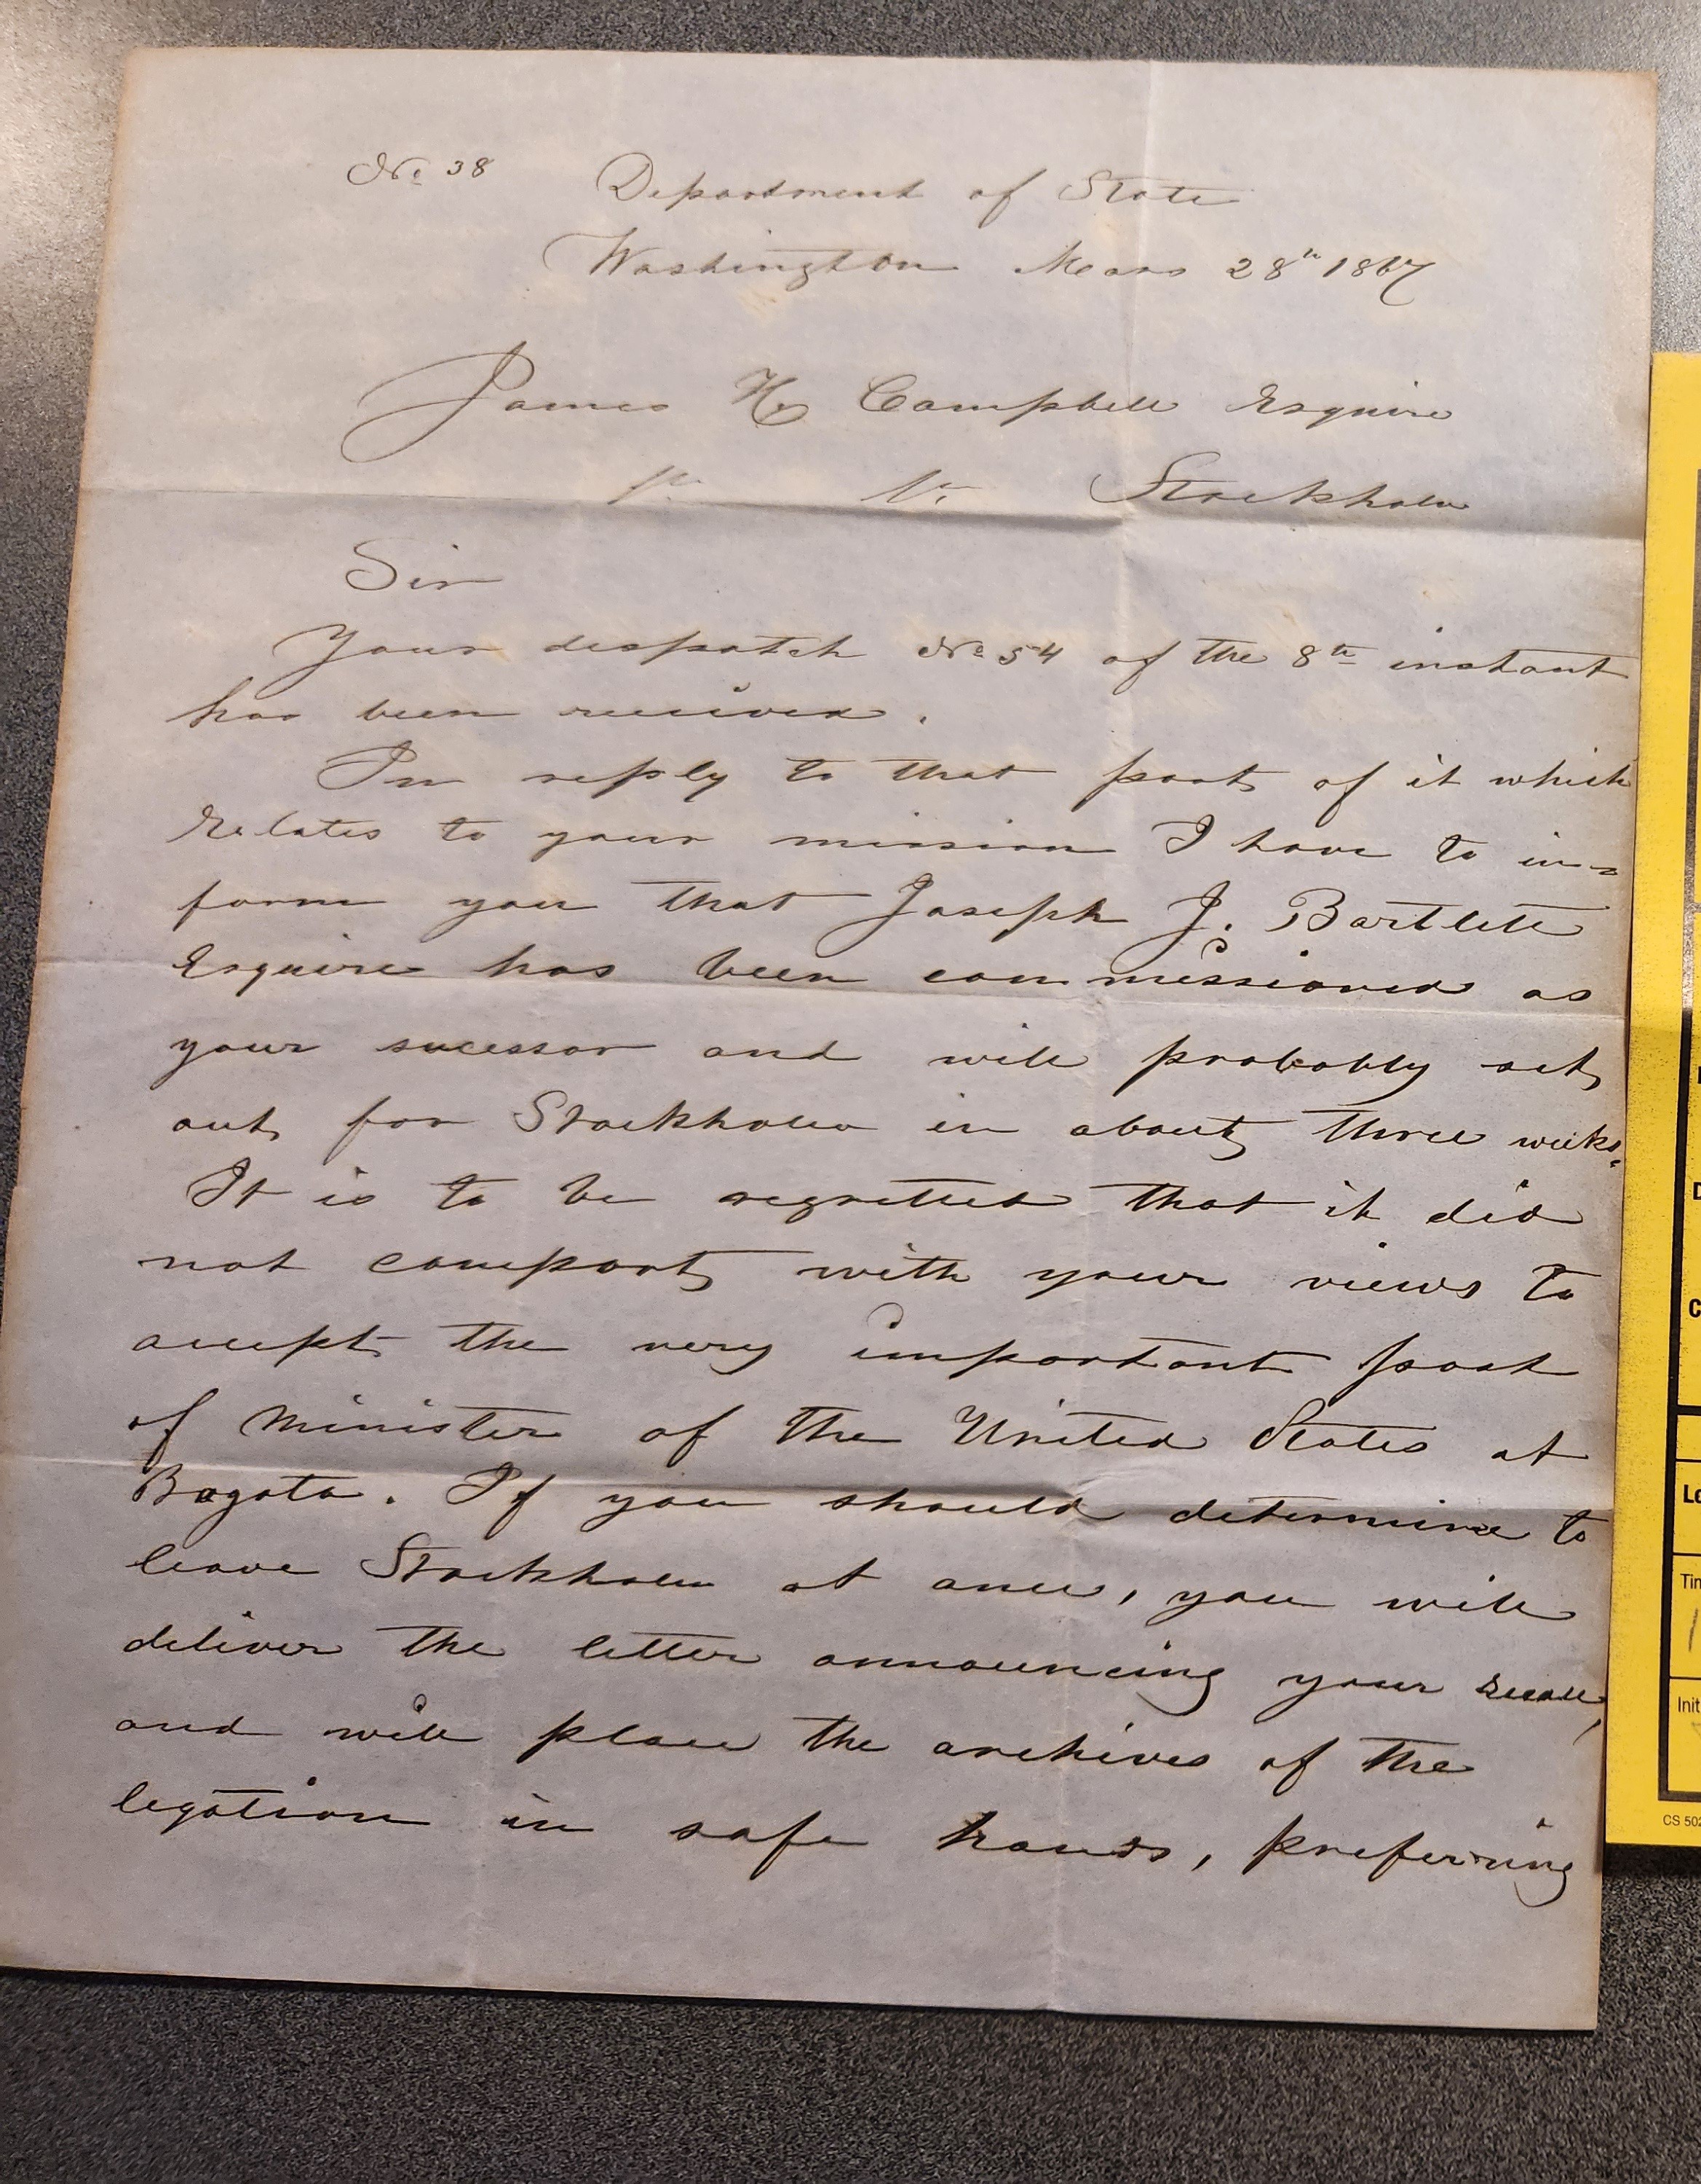 No. 38 Department of State
Washington Mars 28th 1867
James H. Campbell Esquire
Stockholm
Sir
Your despatch No. 54 of the 8th instant
has been received.
In reply to that part of it which
relates to your mission I have to in=
form you that Joseph J. Bartlett
Esquire has been commissioned as
your sucessor and will probably set
out for Stockholm in about three weeks.
It is to be regretted that it did
not comport with your views to
accept the very important post
of Minister of the United States at
Bogota. If you should determine to
leave Stockholm at once, you will
deliver the letter announcing your recall,
and will place the archives of the
legation in safe hands, preferring
D
C
Tim
Init
CS 502